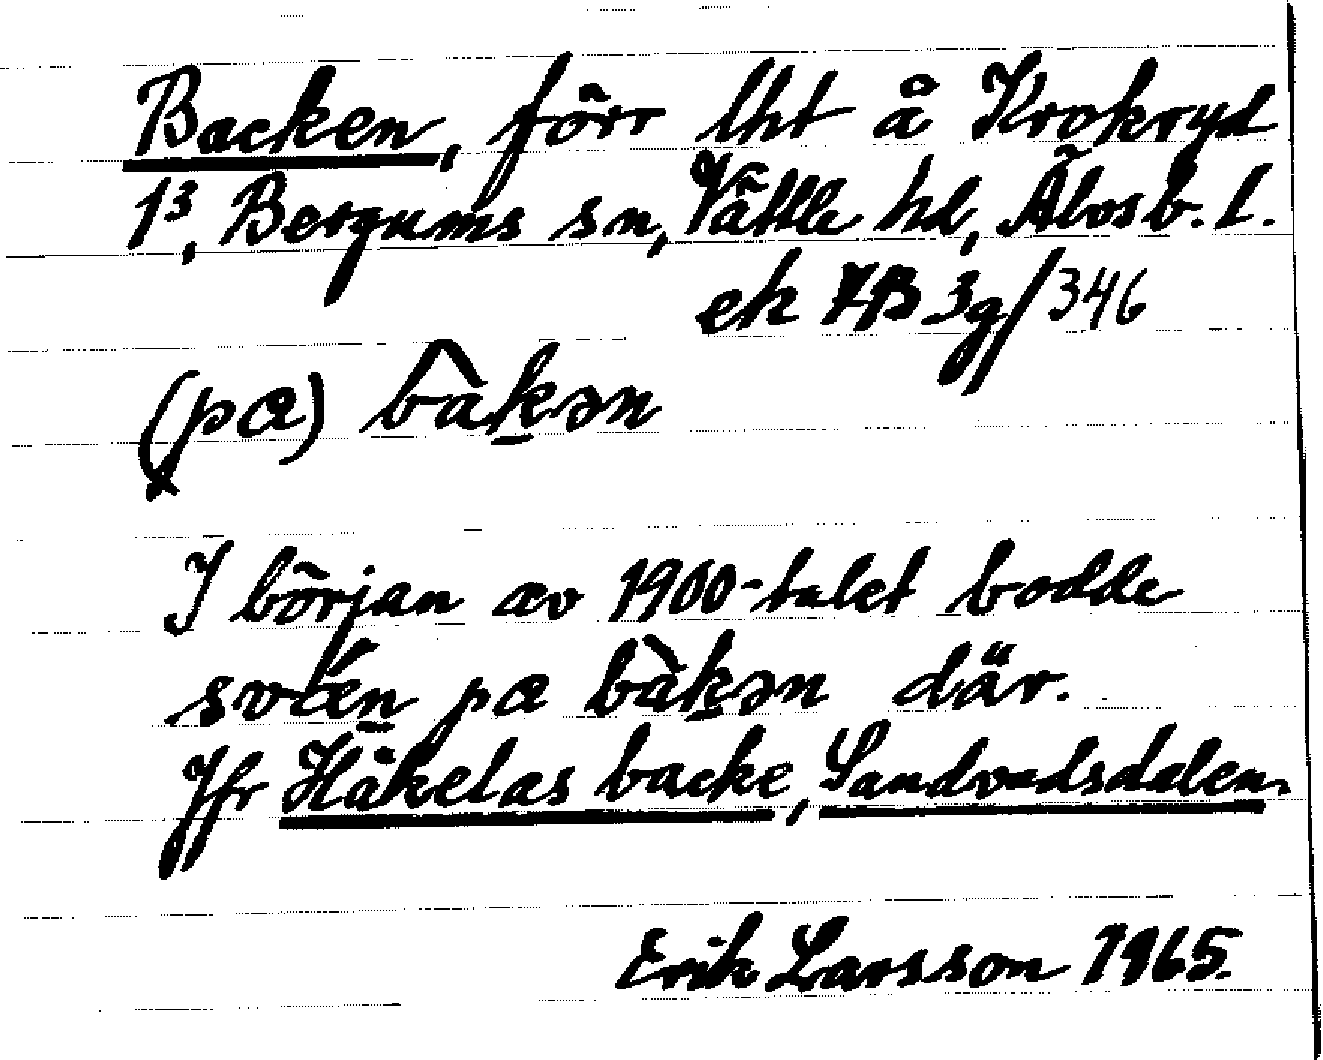 Backen, förr lht å Krokryd
1³, Bergums sn, Vättle hd, Älvsb. l.
ek 7B 3g/346
(pɑ) bàk̠ən
I början av 1900-talet bodde
svǽn pɑ bàk̠ən där.
Jfr Häkelas backe, Sandvadsdalen.
Erik Larsson 1965.